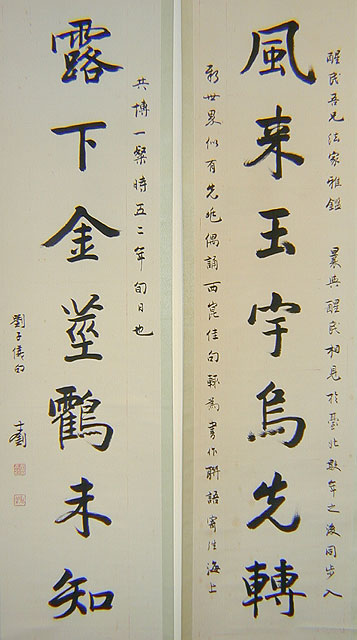 醒民吾兄法家雅鑑　曩與醒民相見於臺北數年之後同步入
風来玉宇烏先轉
新世界似有先兆偶誦西崑佳句輒為書作聯語寄往海上
共博一粲時五二年旬日也
露下金莖鸖未知
劉子儀句